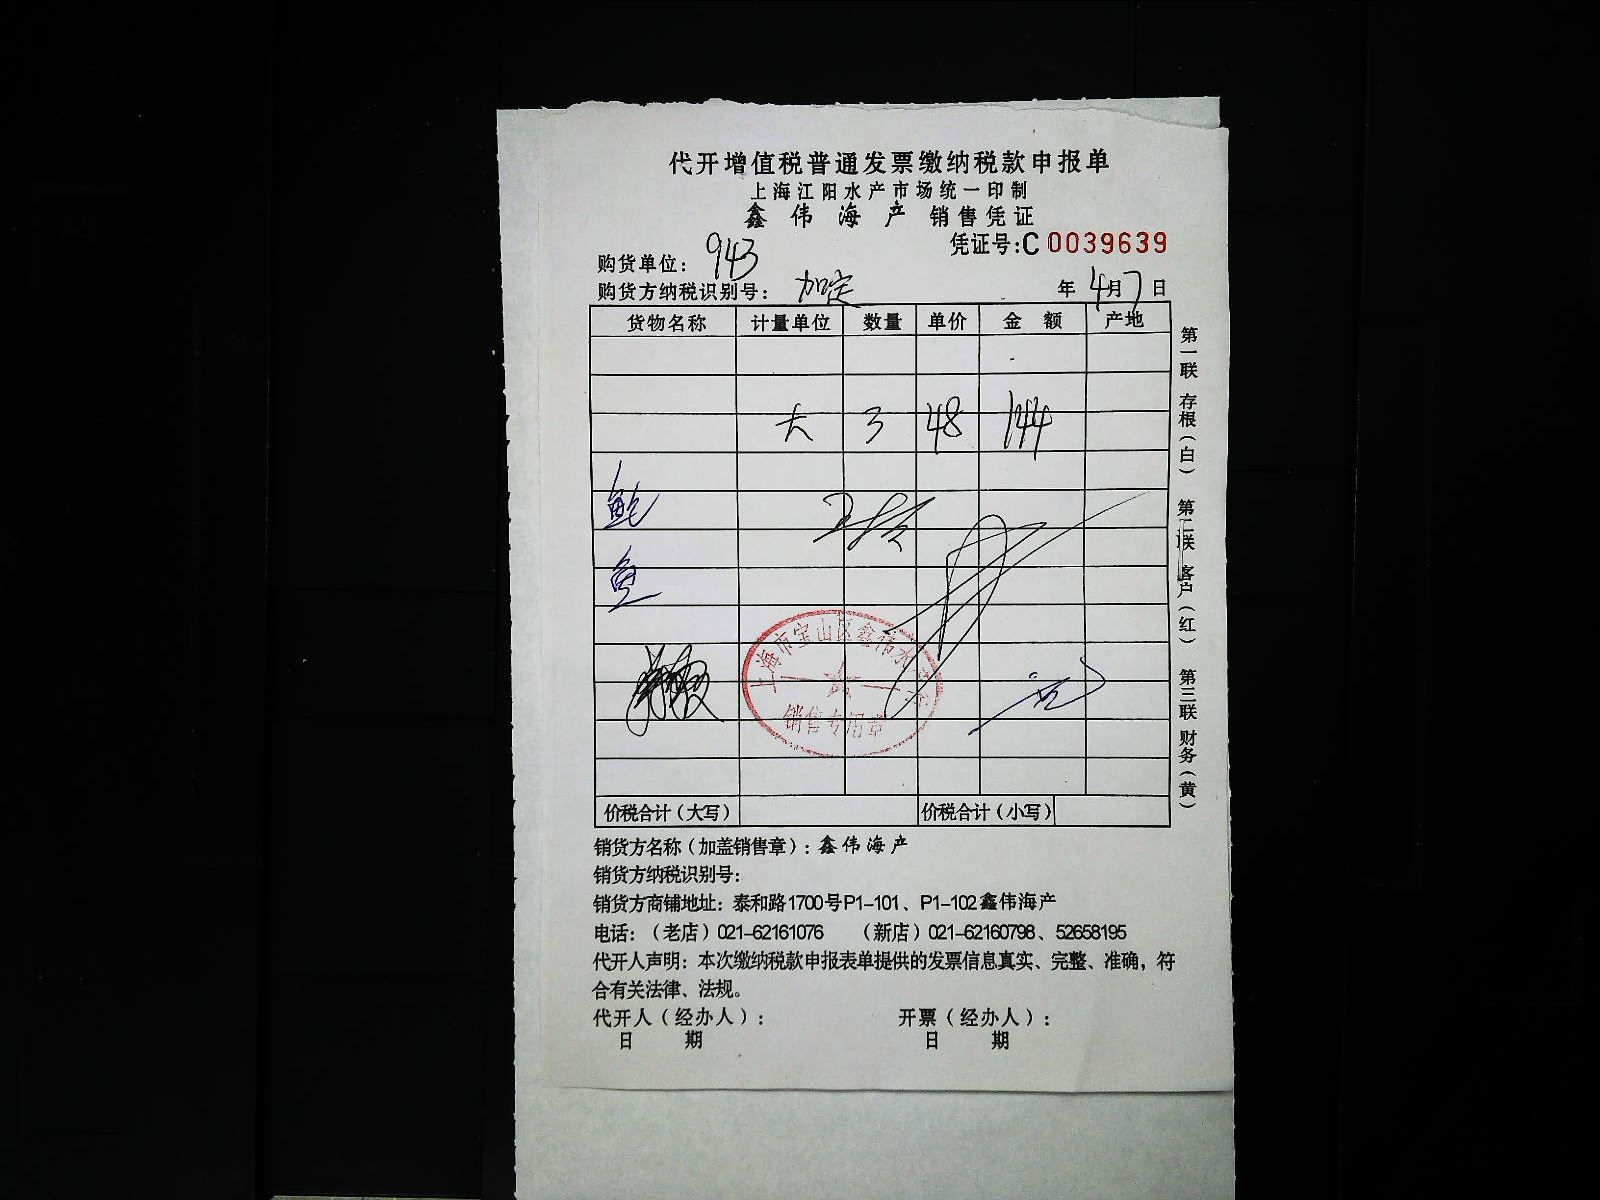 代开增值税普通发票缴纳税款申报单
上海江阳水产市场统一印制
鑫伟海产 销售凭证
凭证号:C 0039639
购货单位: 943
购货方纳税识别号: 加定 年 4月7日
货物名称 计量单位 数量 单价 金额 产地
大 3 48 144
鲍
鱼
上海市宝山区鑫伟水
销售专用章
价税合计(大写) 价税合计(小写)
第一联 存根(白) 第二联 客户(红) 第三联 财务(黄)
销货方名称(加盖销售章): 鑫伟海产
销货方纳税识别号:
销货方商铺地址: 泰和路1700号P1-101、P1-102鑫伟海产
电话:(老店)021-62161076 (新店)021-62160798、52658195
代开人声明: 本次缴纳税款申报表单提供的发票信息真实、完整、准确,符
合有关法律、法规。
代开人(经办人): 开票(经办人):
日期 日期